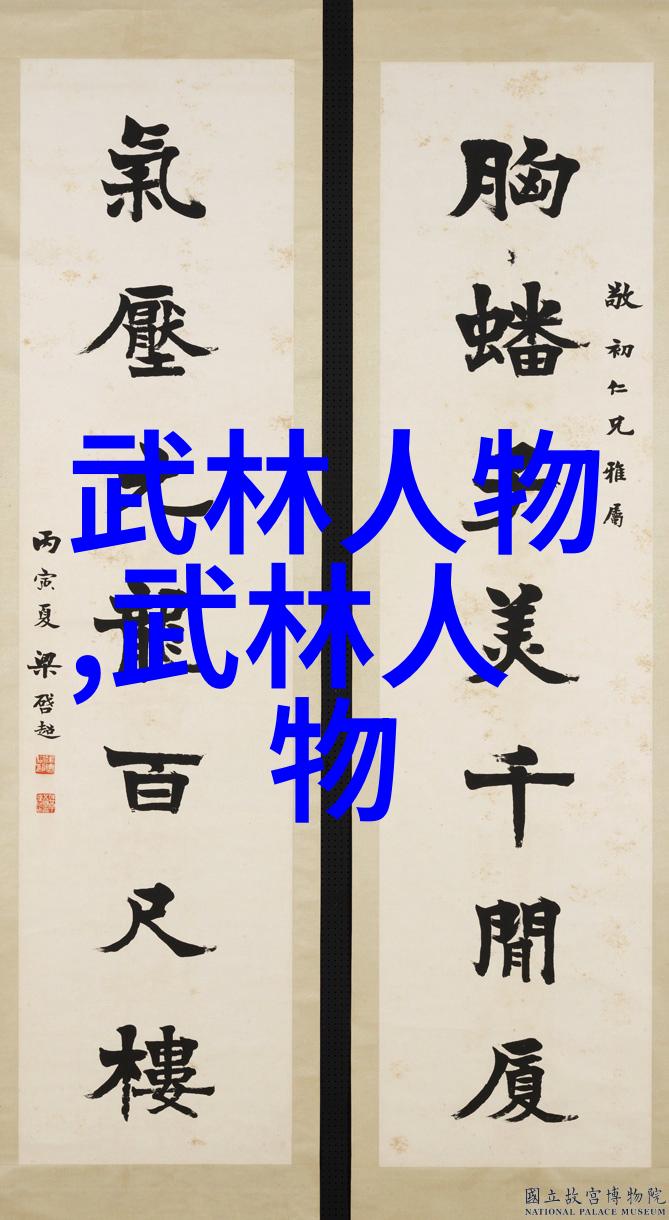 胸蟠子美千閒厦
敬初仁兄雅屬
氣壓元龍百尺樓
丙寅夏 梁啓超
武林人物
,武林人
物
國立故宮博物院
NATIONAL PALACE MUSEUM